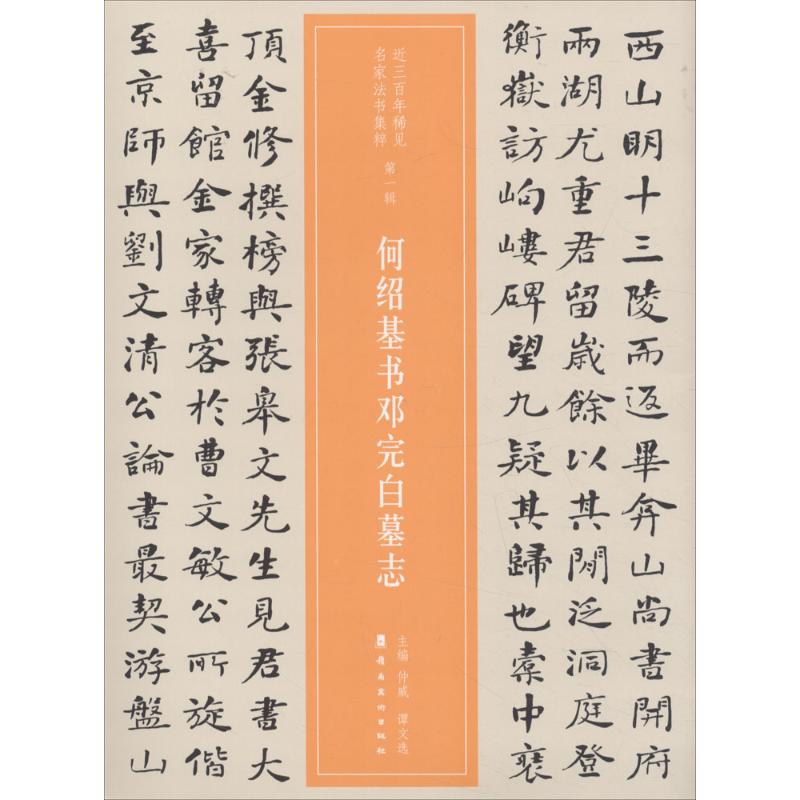 西山明十三陵而返畢弇山尚書開府
兩湖尤重君留歲餘以其閒泛洞庭登
衡嶽訪岣嶁碑望九疑其歸也橐中裵
近三百年稀见
名家法书集粹
第一辑
何绍基书邓完白墓志
主编 仲威 谭文选
岭南美术出版社
頂金修撰榜與張皋文先生見君書大
喜留館金家轉客於曹文敏公所旋偕
至京師與劉文清公論書最契游盤山